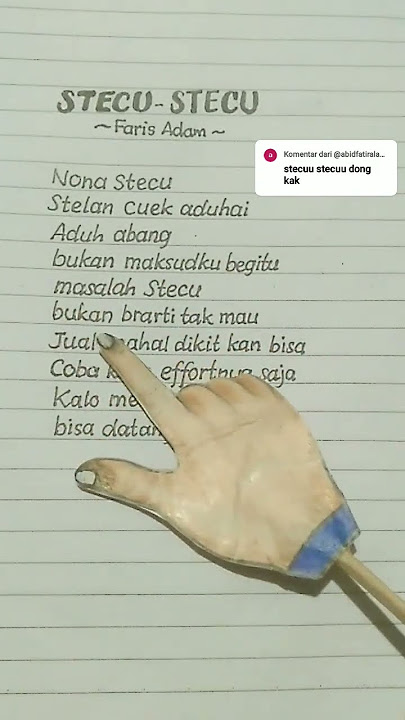 STECU-STECU
~Faris Adam~
Komentar dari @abidfatirala...
stecuu stecuu dong
kak
Nona Stecu
Stelan cuek aduhai
Aduh abang
bukan maksudku begitu
masalah Stecu
bukan brarti tak mau
Jual mahal dikit kan bisa
Coba effortnya saja
Kalo
bisa